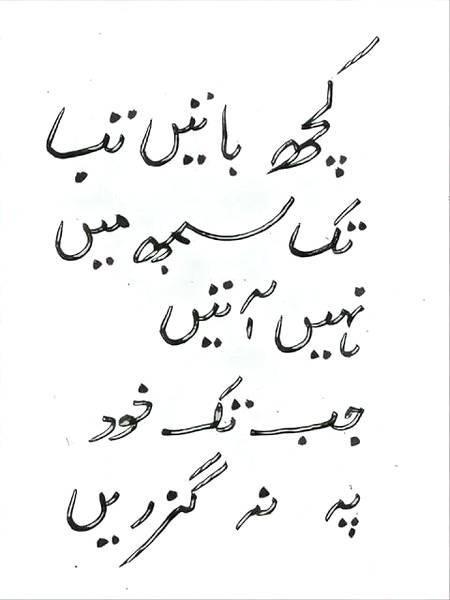 کچھ باتیں تب
تک سمجھ میں
نہیں آتیں
جب تک خود
پہ نہ گزریں